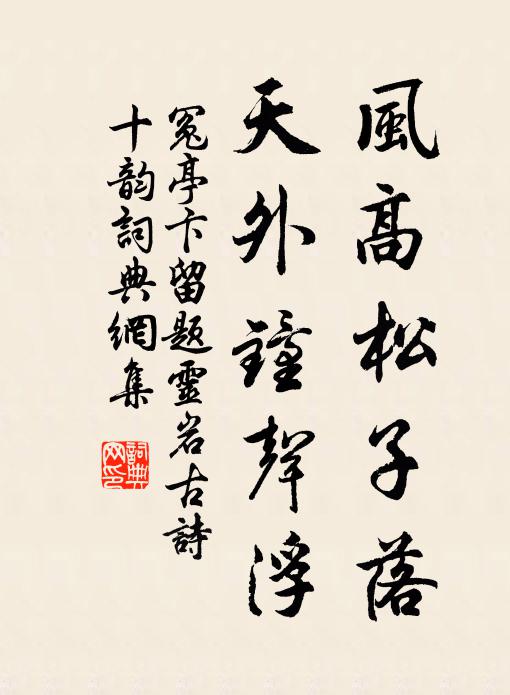 風高松子落
天外鐘聲浮
冤亭卞留題靈岩古詩
十韵詞典網集
詞典网印